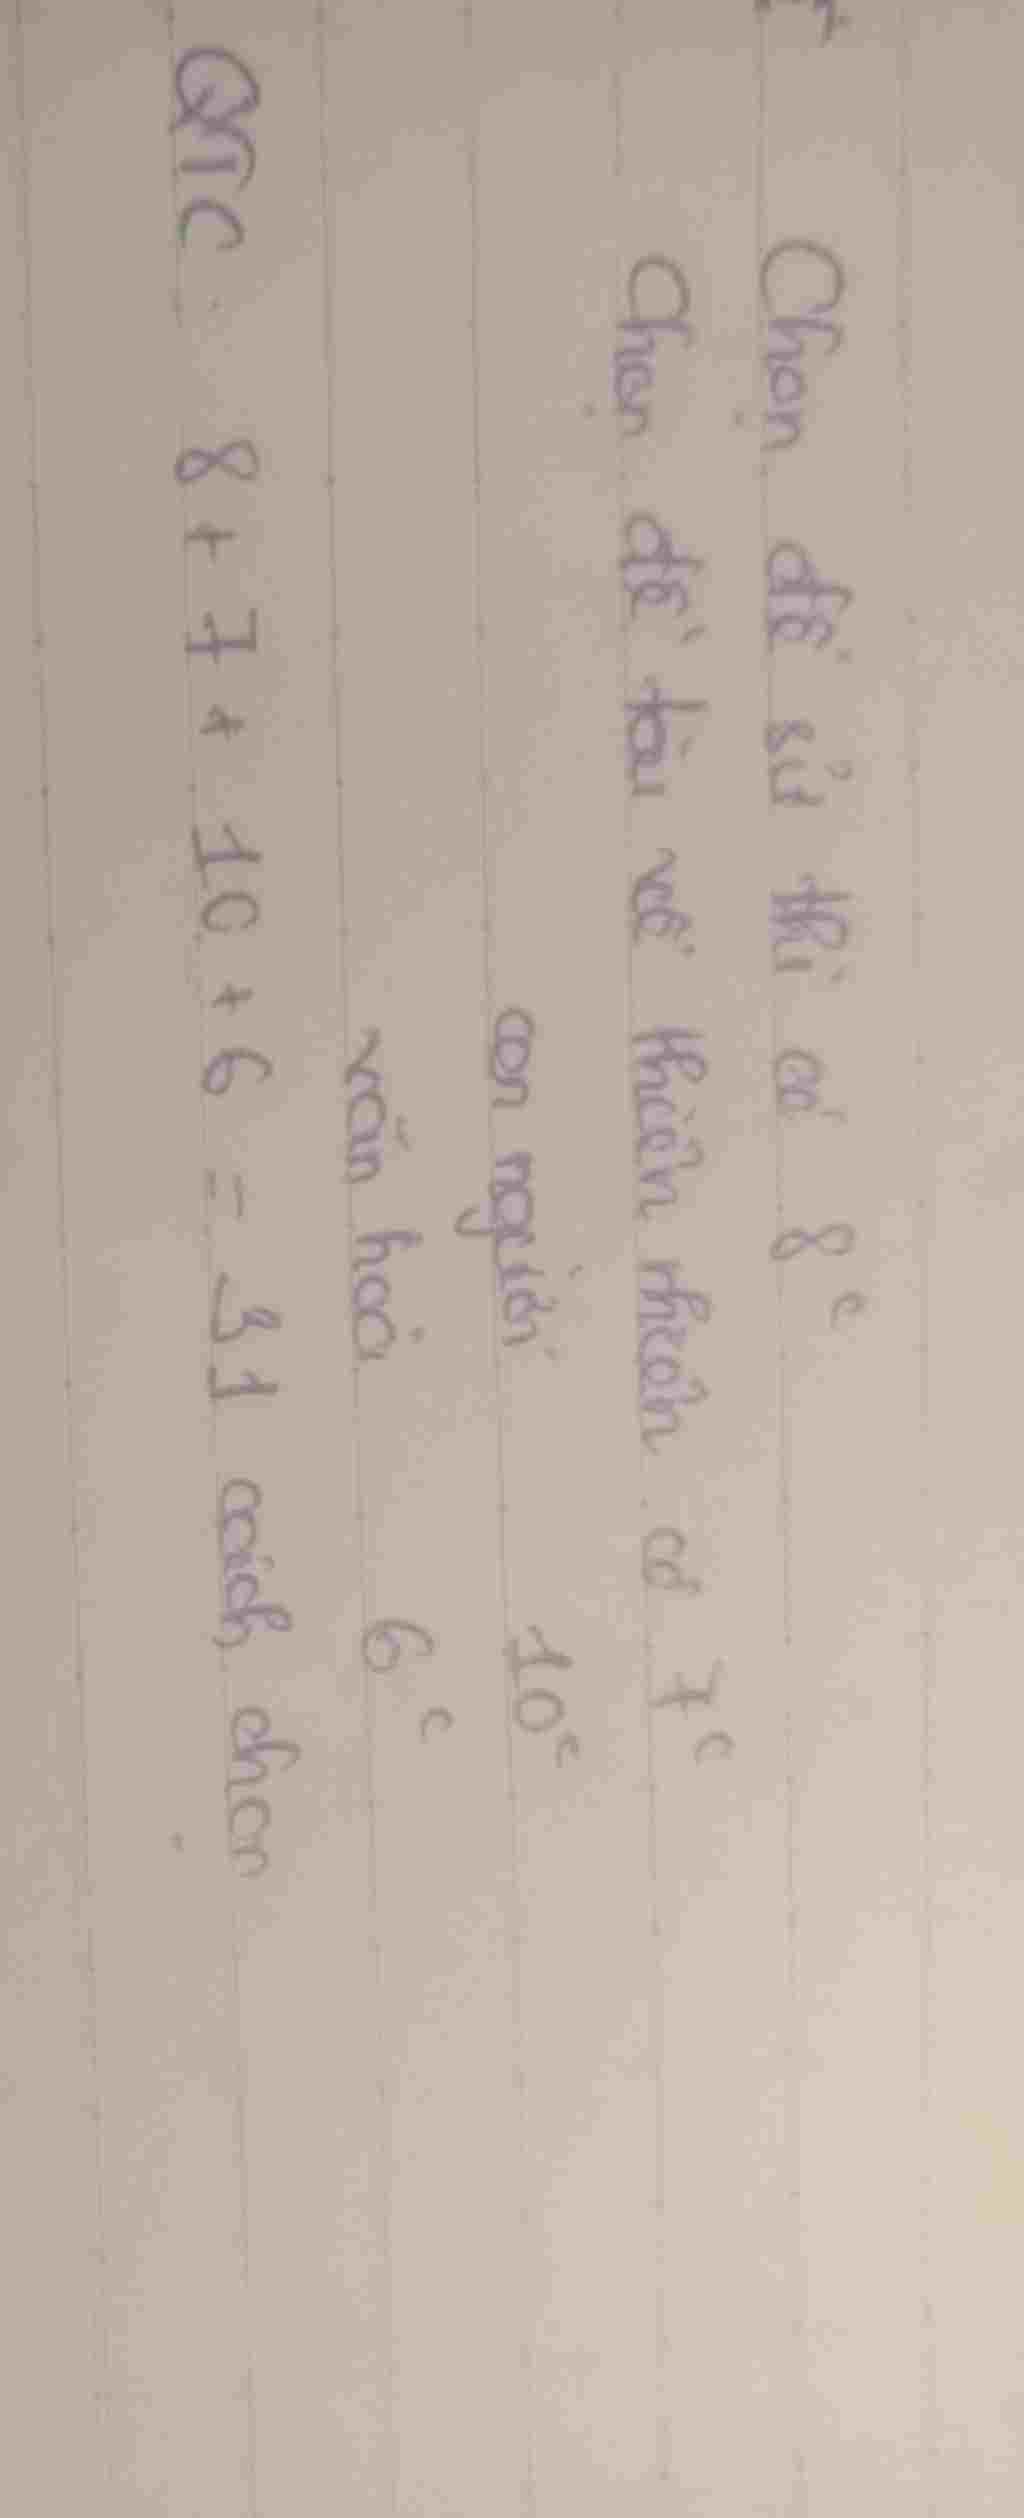 Chọn để sử thi có 8c
Chọn đề tài về thiên nhiên có 7c
con người 10c
văn hoá 6c
QTC: 8 + 7 + 10 + 6 = 31 cách chọn